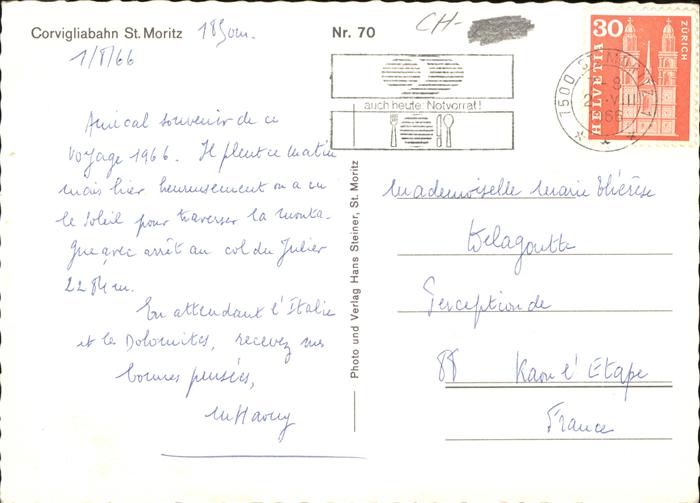 Corvigliabahn St. Moritz 1850m.
Nr. 70
CH-
1/8/66
30
HELVETIA
ZÜRICH
auch heute: Notvorrat!
7500 ST. MORITZ 1
Amical souvenir de ce
voyage 1966. Il pleut ce matin
mais hier heureusement on a eu
le soleil pour traverser la monta-
gne avec arrêt au col du Julier
2284 m.
En attendant l'Italie
et les Dolomites, recevez mes
bonnes pensées,
Photo und Verlag Hans Steiner, St. Moritz
Mademoiselle Marie Thérèse
Delagoutte
Perception de
88 Raon l'Etape
France